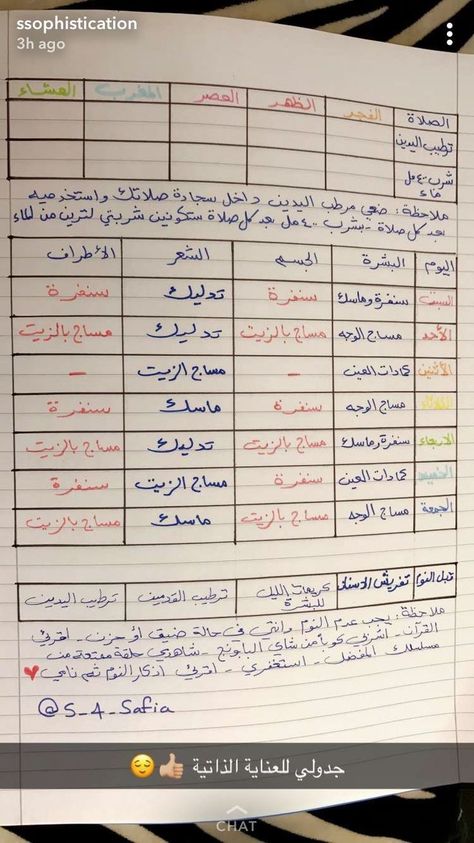 ssophistication
3h ago
الصلاة الفجر الظهر العصر المغرب العشاء
ترطيب اليدين
شرب ٤٠٠ مل ماء
ملاحظة: ضعي مرطب اليدين داخل سجادة صلاتك واستخدميه
بعد كل صلاة - بشرب ٤٠٠ مل بعد كل صلاة ستكونين شربتي لترين من الماء
اليوم البشرة الجسم الشعر الأطراف
السبت سنفرة وماسك سنفرة تدليك سنفرة
الأحد مساج الوجه مساج بالزيت تدليك مساج بالزيت
الأثنين كمادات العين - مساج الزيت -
الثلاثاء مساج الوجه سنفرة ماسك سنفرة
الاربعاء سنفرة وماسك مساج بالزيت تدليك مساج بالزيت
الخميس كمادات العين سنفرة مساج الزيت سنفرة
الجمعة مساج الوجه مساج بالزيت ماسك مساج بالزيت
قبل النوم تفريش الاسنان كريمات الليل للبشرة ترطيب القدمين ترطيب اليدين
ملاحظة: يجب عدم النوم وانتي في حالة ضيق أو حزن - اقرئي
القرآن - اشربي كوباً من شاي البابونج - شاهدي حلقة ممتعة من
مسلسلك المفضل - استغفري - اقرئي اذكار النوم ثم نامي ❤
@S_4_Safia
جدولي للعناية الذاتية 👍🏼😌
CHAT